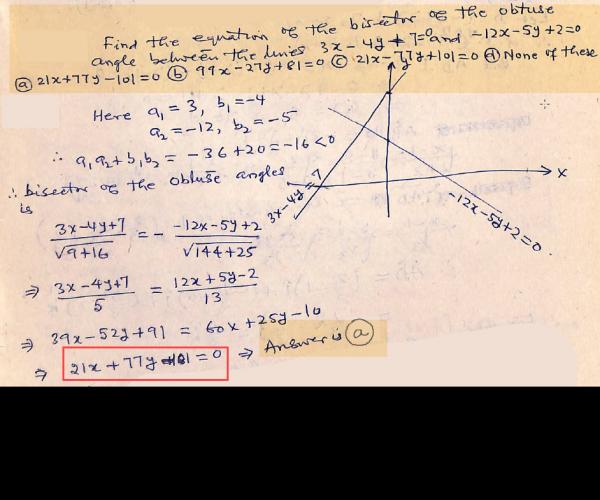 Find the equation of the bisector of the obtuse
angle between the lines 3x-4y+7=0 and -12x-5y+2=0
ⓐ 21x+77y-101=0 ⓑ 99x-27y+81=0 ⓒ 21x-77y+101=0 ⓓ None of these
Here a₁=3, b₁=-4
a₂=-12, b₂=-5
∴ a₁a₂+b₁b₂ = -36+20=-16<0
∴ bisector of the obtuse angles
is
(3x-4y+7)/√(9+16) = - (-12x-5y+2)/√(144+25)
⇒ (3x-4y+7)/5 = (12x+5y-2)/13
⇒ 39x-52y+91 = 60x+25y-10
⇒ 21x+77y-101=0 ⇒ Answer is ⓐ
x
3x-4y=7
-12x-5y+2=0